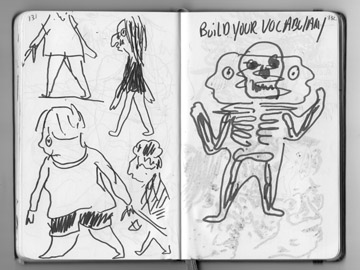 131
BUiLD YOUR VOCABULARY
132